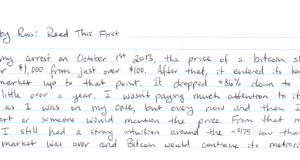 by Ross: Read This First
my arrest on October 1st 2013, the price of a bitcoin s
r $1,000 from just over $100. After that, it entered its
market up to that point. It dropped ~86% down to
little over a year. I wasn't paying much attention to it
as I was on my case, but every now and then I
art or someone would mention the price. From that m
I still had a strong intuition around the ~$175 low that
market was over and Bitcoin would continue its